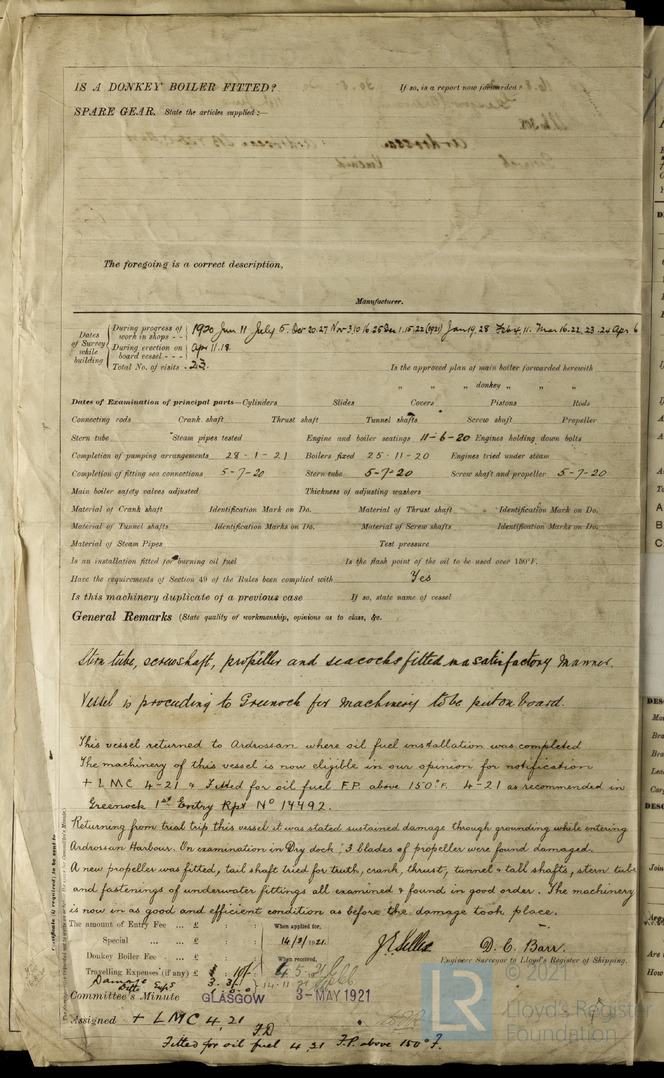 IS A DONKEY BOILER FITTED? If so, is a report now forwarded?
SPARE GEAR. State the articles supplied:—
The foregoing is a correct description,
Manufacturer.
Dates of Survey while building
During progress of work in shops - - 1920 Jun 11 July 5. Oct 20.27 Nov 3,10,16,25 Dec 1.15.22 (1921) Jan 19.28 Feb 4.11. Mar 16.22.23.24 Apr 6
During erection on board vessel - - - Apr 11.18.
Total No. of visits 23.
Is the approved plan of main boiler forwarded herewith
" " " donkey " " "
Dates of Examination of principal parts—Cylinders Slides Covers Pistons Rods
Connecting rods Crank shaft Thrust shaft Tunnel shafts Screw shaft Propeller
Stern tube Steam pipes tested Engine and boiler seatings 11-6-20 Engines holding down bolts
Completion of pumping arrangements 28-1-21 Boilers fixed 25-11-20 Engines tried under steam
Completion of fitting sea connections 5-7-20 Stern tube 5-7-20 Screw shaft and propeller 5-7-20
Main boiler safety valves adjusted Thickness of adjusting washers
Material of Crank shaft Identification Mark on Do. Material of Thrust shaft Identification Mark on Do.
Material of Tunnel shafts Identification Marks on Do. Material of Screw shafts Identification Marks on Do.
Material of Steam Pipes Test pressure
Is an installation fitted for burning oil fuel Is the flash point of the oil to be used over 150°F.
Have the requirements of Section 49 of the Rules been complied with Yes
Is this machinery duplicate of a previous case If so, state name of vessel
General Remarks (State quality of workmanship, opinions as to class, &c.
Stern tube, screwshaft, propeller and seacocks fitted in a satisfactory manner.
Vessel is proceeding to Greenock for machinery to be put on board.
This vessel returned to Ardrossan where oil fuel installation was completed
The machinery of this vessel is now eligible in our opinion for notification
+ LMC 4-21 & Fitted for oil fuel F.P. above 150°F. 4-21 as recommended in
Greenock 1st Entry Rpt No 14492.
Returning from trial trip this vessel it was stated sustained damage through grounding while entering
Ardrossan Harbour. On examination in Dry dock, 3 blades of propeller were found damaged.
A new propeller was fitted, tail shaft tried for truth, crank, thrust, tunnel & tail shafts, stern tube
and fastenings of underwater fittings all examined & found in good order. The machinery
is now in as good and efficient condition as before the damage took place.
The amount of Entry Fee ... £ : : When applied for,
Special ... ... £ : : 14/3/1921.
Donkey Boiler Fee ... £ : : When received,
Travelling Expenses (if any) £
Damage
D. C. Barr.
Engineer Surveyor to Lloyd's Register of Shipping.
Committee's Minute GLASGOW 3-MAY 1921
Assigned + LMC 4,21
F.D
Fitted for oil fuel 4,21 F.P. above 150°F.
LR
© 2021
Lloyd's Register
Foundation